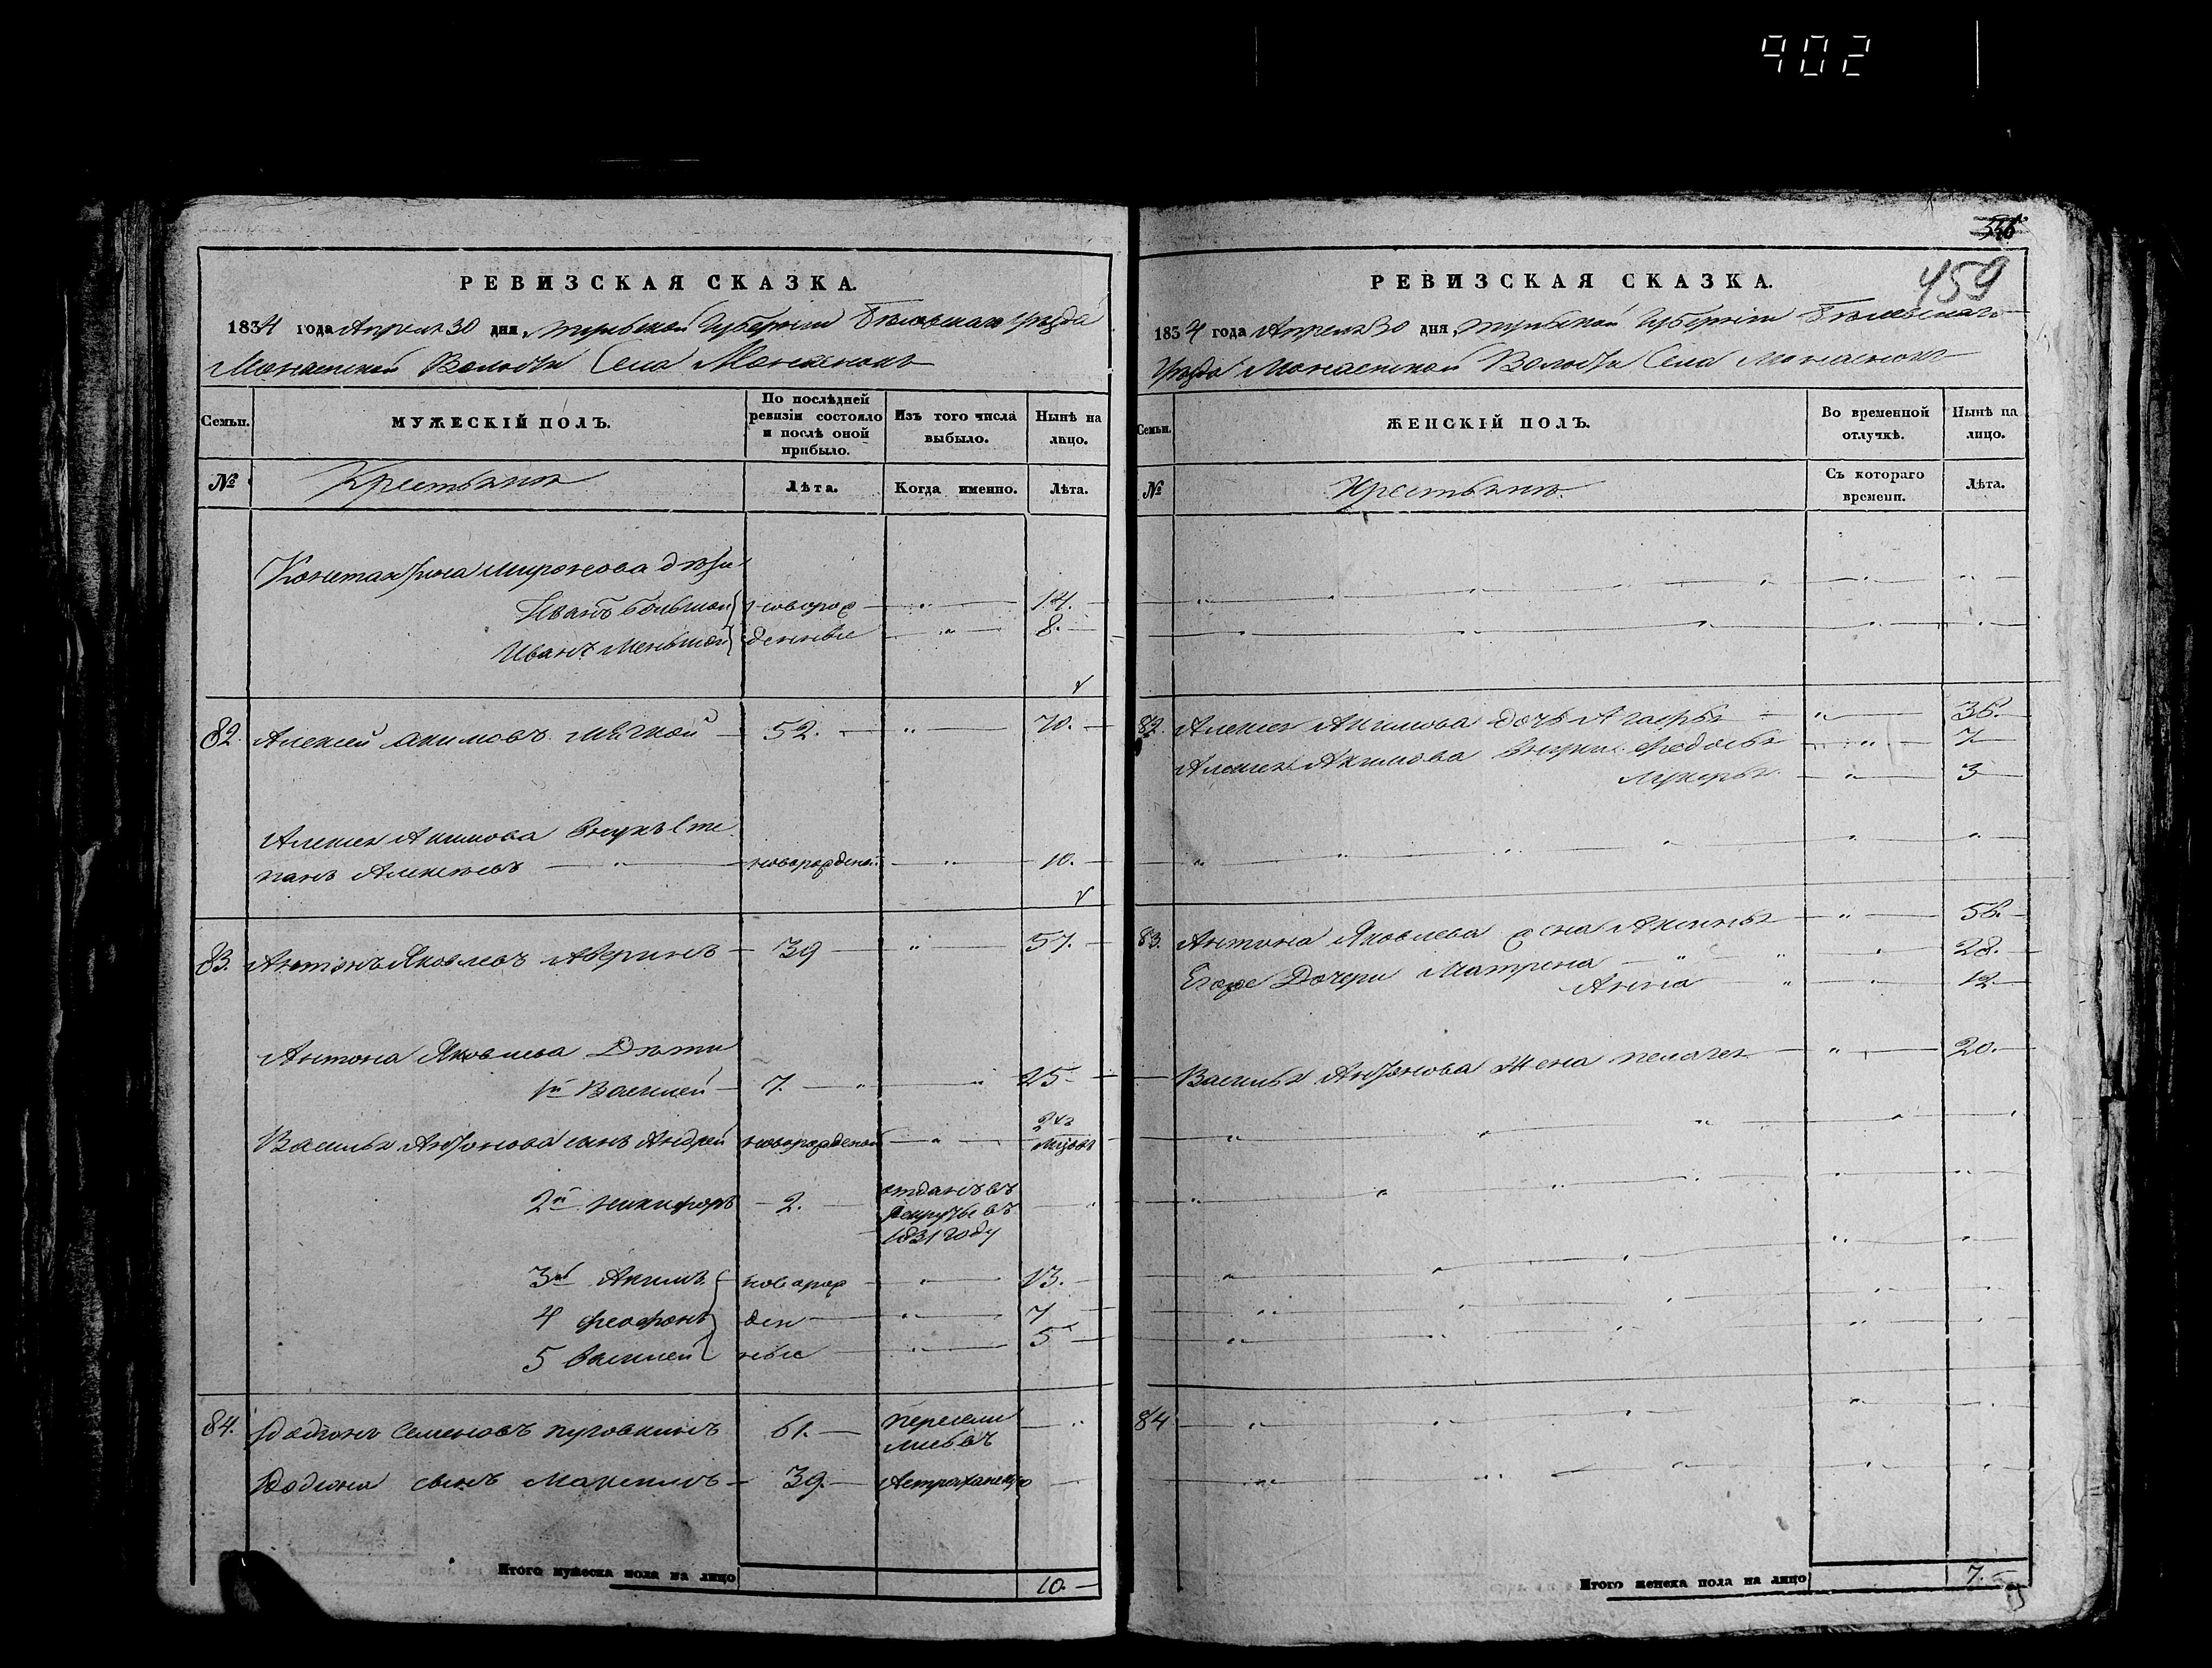 902
РЕВИЗСКАЯ СКАЗКА.
1834 года Апреля 30 дня, Тульской Губернiи Белевскаго Уезда
Монаенской Волости Села Монаенокъ
Семьи.
МУЖЕСКІЙ ПОЛЪ.
По послѣдней ревизіи состояло и послѣ оной прибыло.
Изъ того числа выбыло.
Нынѣ на лицо.
№
Крестьяня
Лѣта.
Когда именно.
Лѣта.
Константина миронова дѣти
Иванъ большой новорож 14.
Иванъ Меньшой денные 8.
82. Алексей акимовъ Мягкой 52. 70.
Алексея Акимова Внукъ Сте
панъ Алексеевъ новорожденой 10.
83. Антонъ Яковлевъ Аверинъ 39 57.
Антона Яковлева Дѣти
1й Василей 7. 25
Василья Антонова сынъ Андрей новорожденой
2й никифоръ 2. отданъ въ рекруты въ 1831 году
3й Акимъ новорож 13.
4 феофонъ ден 7
5 Василей ные 5
84. Родионъ Семеновъ пуговкинъ 61. пересели лись въ
Родиона сынъ Максимъ 39. Астраханскую
Итого мужеска пола на лицо 10.
459
РЕВИЗСКАЯ СКАЗКА.
1834 года Апреля 30 дня, Тульской Губернiи Белевскаго
Уезда Монаенской Волости Села Монаенокъ
Семьи.
ЖЕНСКІЙ ПОЛЪ.
Во временной отлучкѣ.
Нынѣ на лицо.
№
Крестьяня
Съ котораго времени.
Лѣта.
82. Алексея Акимова дочь Агафья 36.
Алексея Акимова Внуки Федосья 7
Лукерья 3
83. Антона Яковлева жена Аксинья 56.
Егоже Дочери Матрена 28.
Анна 12
Василья Антонова Жена пелагея 20.
84
Итого женска пола на лицо 7.